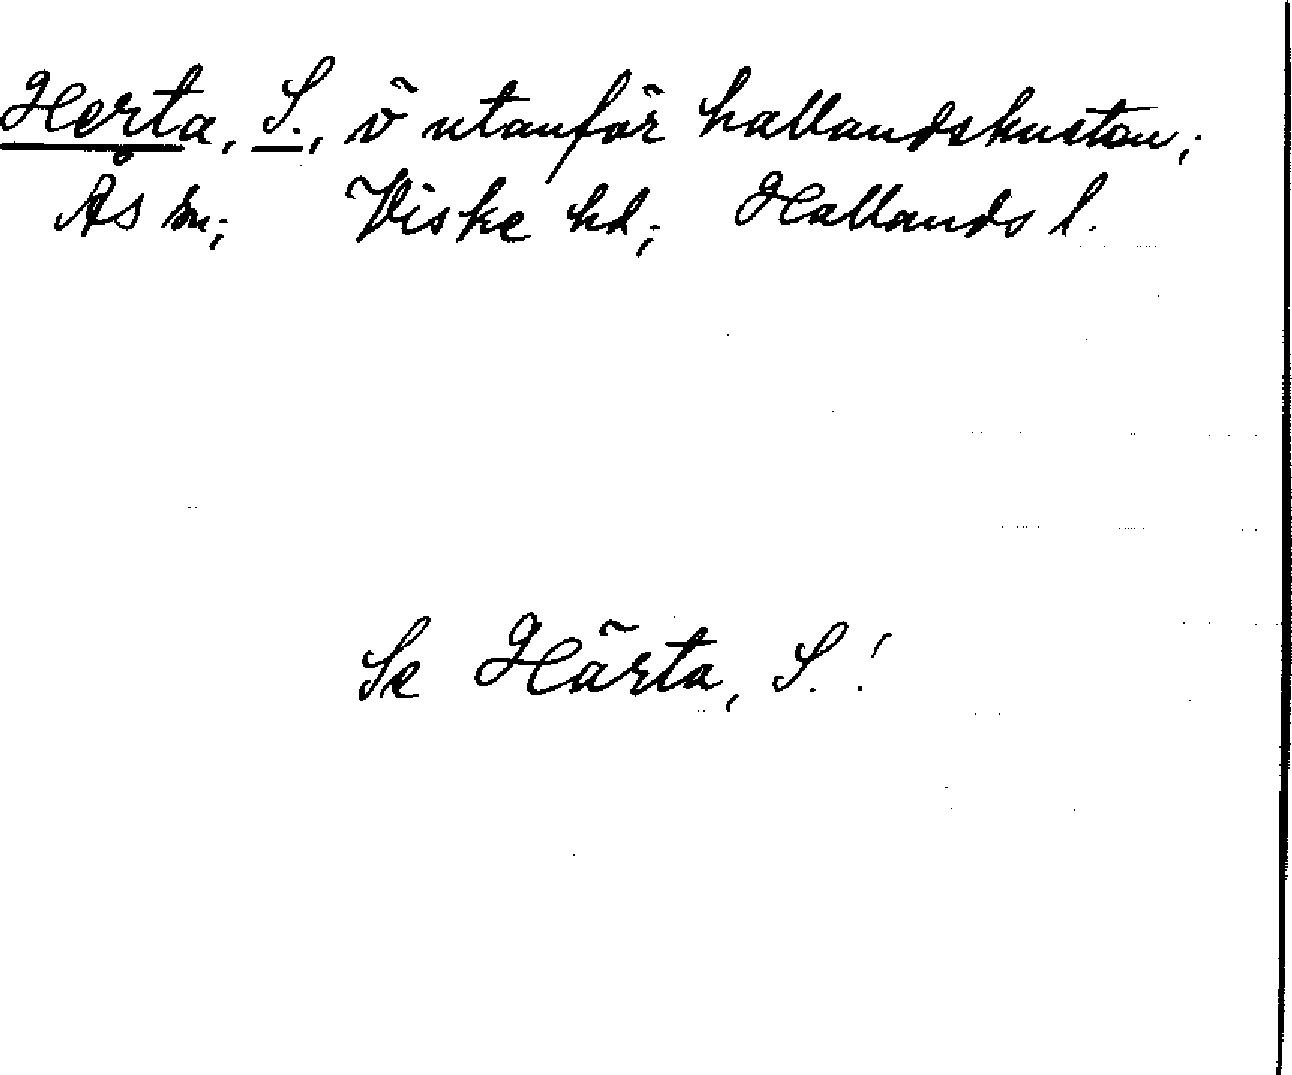 Herta, S., ö utanför hallandskusten;
Ås sn; Viske hd; Hallands l.
Se Härta, S.!